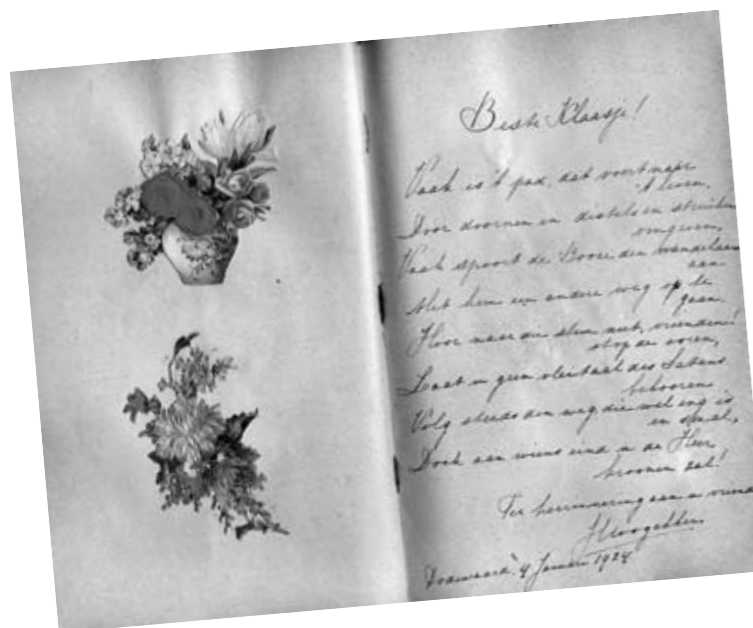 Beste Klaasje!
Vaak is 't pad, dat voert naar
't leven,
Door doornen en distels en struiken
omgeven,
Vaak spoort de Booze den wandelaar
aan
Met hem een andere weg op te
gaan.
Hoor naar die stem niet, vrienden!
stop de ooren,
Laat u geen vleitaal des Satans
bekooren
Volg steeds den weg die wel eng is
en smal,
Doch aan wiens eind u de Heer
kroonen zal!
Ter herinnering aan u vriend
Dodewaard, 4 Januari 1924